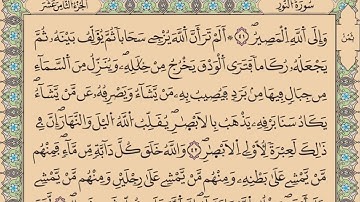 سُورَةُ النُّورِ
الجُزْءُ الثَّامِنَ عَشَرَ
ثُمُن
وَإِلَى ٱللَّهِ ٱلْمَصِيرُ ۝ أَلَمْ تَرَ أَنَّ ٱللَّهَ يُزْجِى سَحَابًا ثُمَّ يُؤَلِّفُ بَيْنَهُۥ ثُمَّ
يَجْعَلُهُۥ رُكَامًا فَتَرَى ٱلْوَدْقَ يَخْرُجُ مِنْ خِلَٰلِهِۦ وَيُنَزِّلُ مِنَ ٱلسَّمَآءِ
مِن جِبَالٍ فِيهَا مِنۢ بَرَدٍ فَيُصِيبُ بِهِۦ مَن يَشَآءُ وَيَصْرِفُهُۥ عَن مَّن يَشَآءُ
يَكَادُ سَنَا بَرْقِهِۦ يَذْهَبُ بِالْأَبْصَٰرِ ۝ يُقَلِّبُ ٱللَّهُ ٱلَّيْلَ وَٱلنَّهَارَ إِنَّ فِى
ذَٰلِكَ لَعِبْرَةً لِّأُوْلِى ٱلْأَبْصَٰرِ ۝ وَٱللَّهُ خَلَقَ كُلَّ دَآبَّةٍ مِّن مَّآءٍ فَمِنْهُم
مَّن يَمْشِى عَلَىٰ بَطْنِهِۦ وَمِنْهُم مَّن يَمْشِى عَلَىٰ رِجْلَيْنِ وَمِنْهُم مَّن يَمْشِى